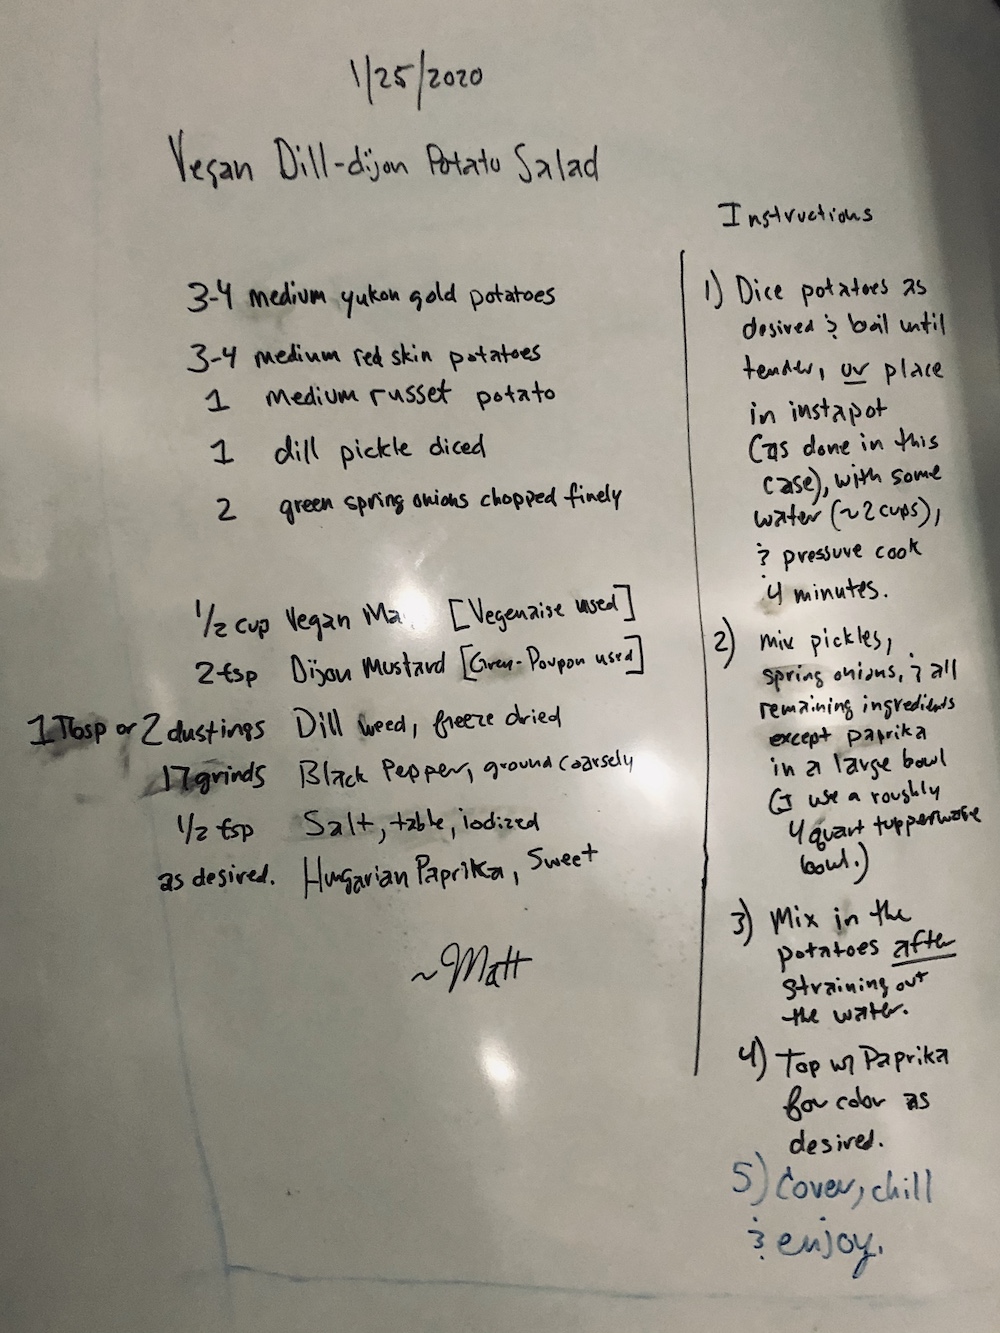 1/25/2020
Vegan Dill-dijon Potato Salad
3-4 medium yukon gold potatoes
3-4 medium red skin potatoes
1 medium russet potato
1 dill pickle diced
2 green spring onions chopped finely
1/2 cup Vegan Ma [Vegenaise used]
2 tsp Dijon Mustard [Grey-Poupon used]
1 Tbsp or 2 dustings Dill weed, freeze dried
17 grinds Black Pepper, ground coarsely
1/2 tsp Salt, table, iodized
as desired. Hungarian Paprika, Sweet
~Matt
Instructions
1) Dice potatoes as
desired & boil until
tender, or place
in instapot
(as done in this
case), with some
water (~2 cups),
& pressure cook
4 minutes.
2) mix pickles,
spring onions, & all
remaining ingredients
except paprika
in a large bowl
(I use a roughly
4 quart tupperware
bowl.)
3) Mix in the
potatoes after
straining out
the water.
4) Top w/ Paprika
for color as
desired.
5) Cover, chill
& enjoy.